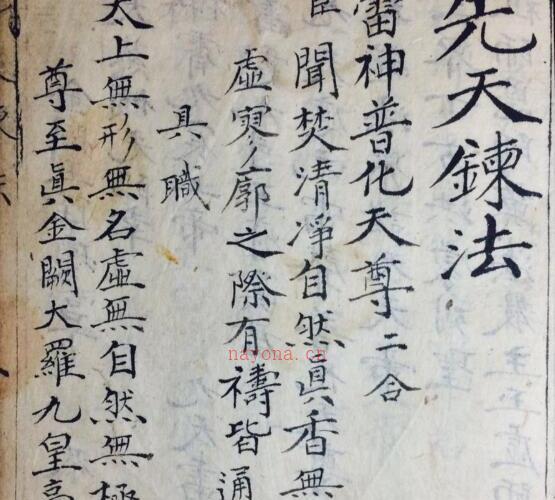 先天鍊法
雷神普化天尊二合
聞焚清淨自然真香無
虛寥廓之際有禱皆通
具職
太上無形無名虛無自然無極
尊至眞金闕大羅九皇高
nayona.cn